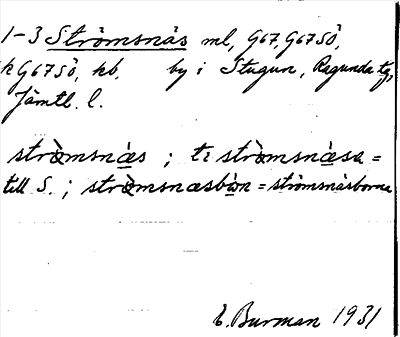 1-3 Strömsnäs ml, G67, G67SÖ,
k G67SÖ, kb. by i Stugun, Ragunda tg,
Jämtl. l.
stròmsnæs ; te stròmsnæsa =
till S. ; stròmsnæsbi̇on = strömsnäsborna
E. Burman 1931